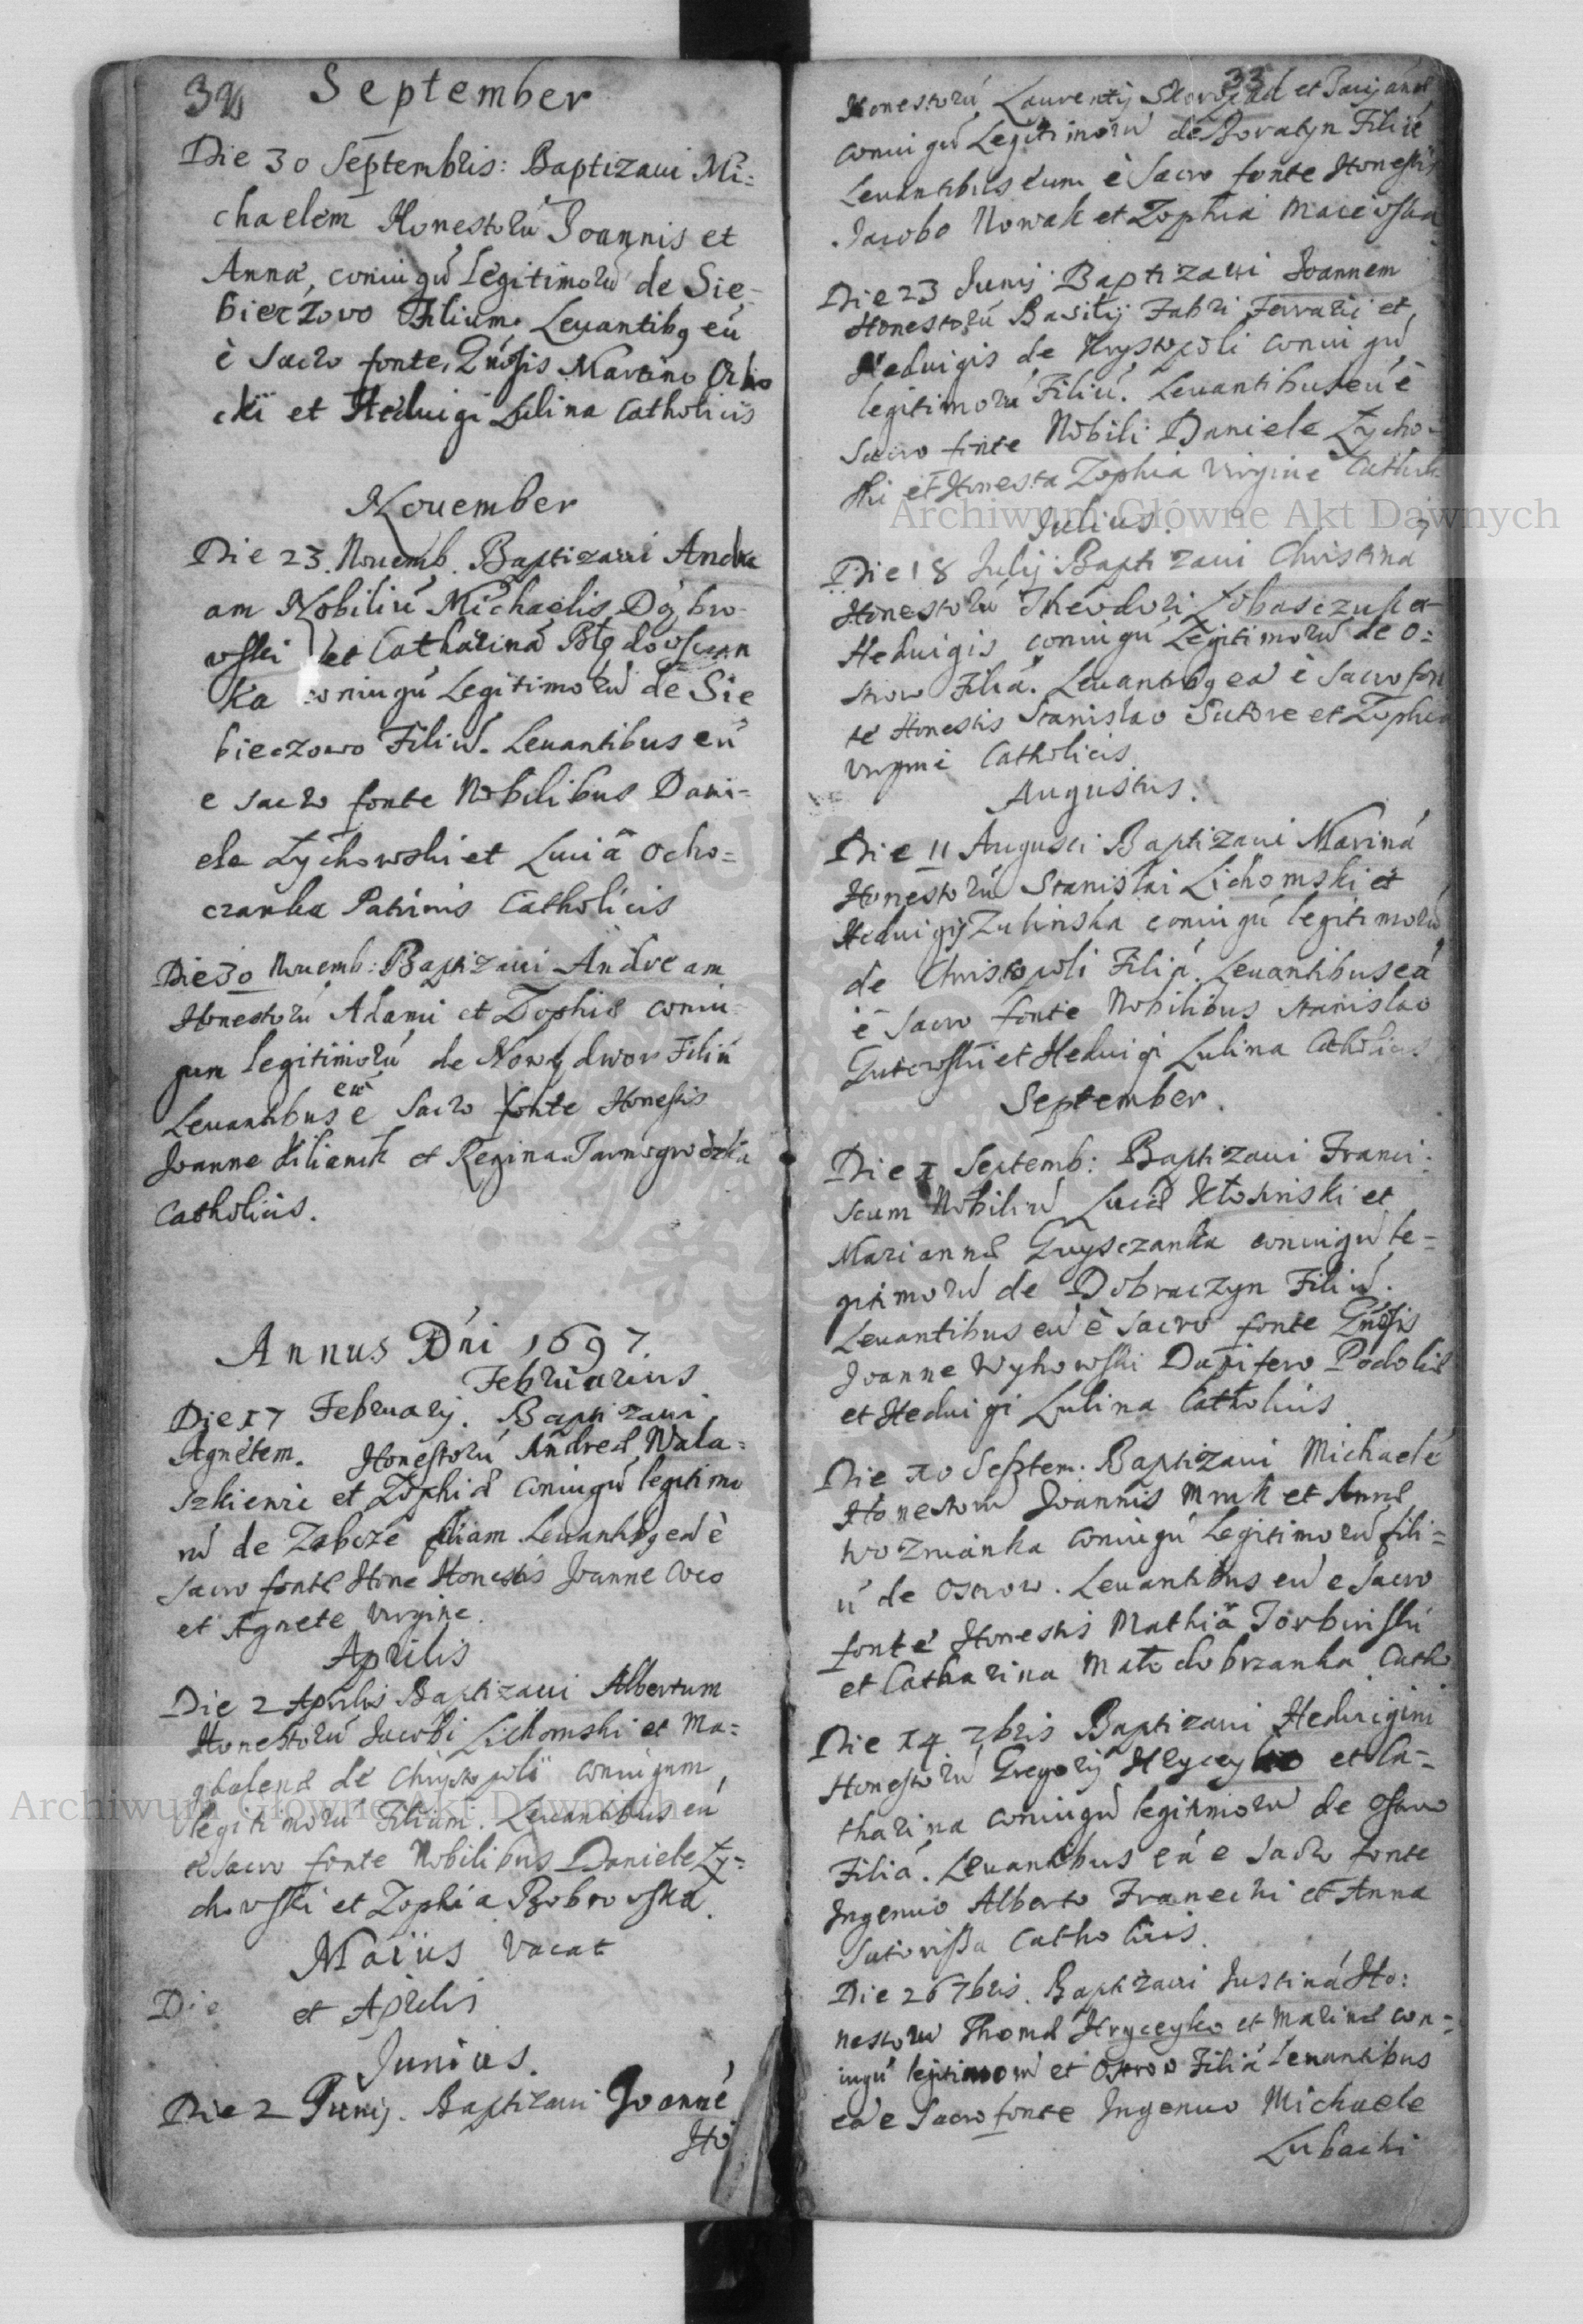 32 September
Die 30 Septembris: Baptizaui Mi=
chaelem Honestorú Joannis et
Annæ, coniugú Legitimorú de Sie,
bierzowo Filium. Leuantibq eú
è Sacro fonte, Gnosis Martino Ocho
cki et Heduigi Lulina Catholicis
Nouember
Die 23. Nouemb. Baptizaui Andre
am Nobiliú Michaelis Dąbro
wski et Catharinæ Błędowscian
ka coniugú Legitimorú de Sie
bieczowo Filiú. Leuantibus eú
e sacro fonte Nobilibus Dani=
ele Łychowski et Luciâ Ocho=
czanka Patrinis Catholicis
Die 30 Nouemb: Baptizaui Andream
Honestorú Adami et Zophiæ coniu
gum legitimorú de Nowy dwor Filiú
Leuantibus eú è Sacro fonte Honestis
Joanne Kilianik et Regina Tarnogrodzka
Catholicis.
Annus Dni 1697.
Februarius
Die 17 February. Baptizaui
Agnetem. Honestorú Andreæ Wala=
szkiewic et Zophiæ Coniugú legitimo
rú de Zabcze filiam Leuantibq eá è
sacro fonte Hone Honestis Joanne Coco
et Agnete virgine.
Aprilis
Die 2 Aprilis Baptizaui Albertum
Honestorú Jacobi Lichomski et Ma=
gdalenæ de Chrystopoli coniugum,
legitimorú Filium. Leuantibus eú
è sacro fonte Nobilibus Daniele Ły=
chowski et Zophia Bobrowska.
Maius vacat
Die et Aprilis
Junius.
Die 2 Junij. Baptizaui Joanné
Ho
33
Honestorú Laurentij et
coniugú Legitimorú de Boratyn Filiú
Leuantibus eum è Sacro fonte Honestis
Jacobo Nowak et Zophia Maciowska
Die 23 Junij Baptizaui Joannem
Honestorú Basilij Fabri Ferrarij et
Heduigis de Krystopoli coniugú
legitimorú Filiú. Leuantibus eú è
Sacro fonte Nobili Daniele Łycho=
ski et Honesta Zophia Virgine Cathol
Julius.
Die 18 Julij Baptizaui Christiná
Honestorú Theodori Łobasczuk et
Heduigis coniugú Legitimorú de O:
strow Filiá. Leuantibq eá è sacro fon
te Honestis Stanislao Sutore et Zophia
virgine Catholicis.
Augustus.
Die 11 Augusti Baptizaui Mariná
Honestorú Stanislai Lichomski et
Heduigis Zulinska coniugú legitimorú
de Christopoli Filiá. Leuantibus eá
è Sacro fonte Nobilibus Stanislao
Gutowski et Heduigi Lulina Catholicis
September.
Die 1 Septemb: Baptizaui Franci:
scum Nobiliú Lucæ Kłopinski et
Mariannæ Gruysczanka coniugú le=
gitimorú de Dobraczyn Filiú.
Leuantibus eú è Sacro fonte Gnosis
Joanne Wyhowski Dapifero Podoliæ
et Heduigi Lulina Catholicis
Die 10 Septem. Baptizaui Michaelé
Honestorú Joannis Mruk et Annæ
wozníanka coniugú legitimorú fili=
ú de Ostrow. Leuantibus eú e Sacro
fonte Honestis Mathiâ Torbinski
et Catharina Małodobrzanka Catho
Die 14 7bris Baptizaui Heduigim
Honestorú Gregorij Hryceyko et Ca=
tharina coniugú legitimorú de Ostrow
Filiá. Leuantibus eá e Sacro fonte
Ingenuo Alberto Franecki et Anna
Sutorissa Catholicis.
Die 26 7bris. Baptizaui Justiná Ho:
nestorú Thomæ Hryceyko et Marinæ con=
iugú legitimorú et Ostrow Filiá Leuantibus
eá e Sacro fonte Ingenuo Michaele
Lubacki
Archiwum Główne Akt Dawnych
Archiwum Główne Akt Dawnych